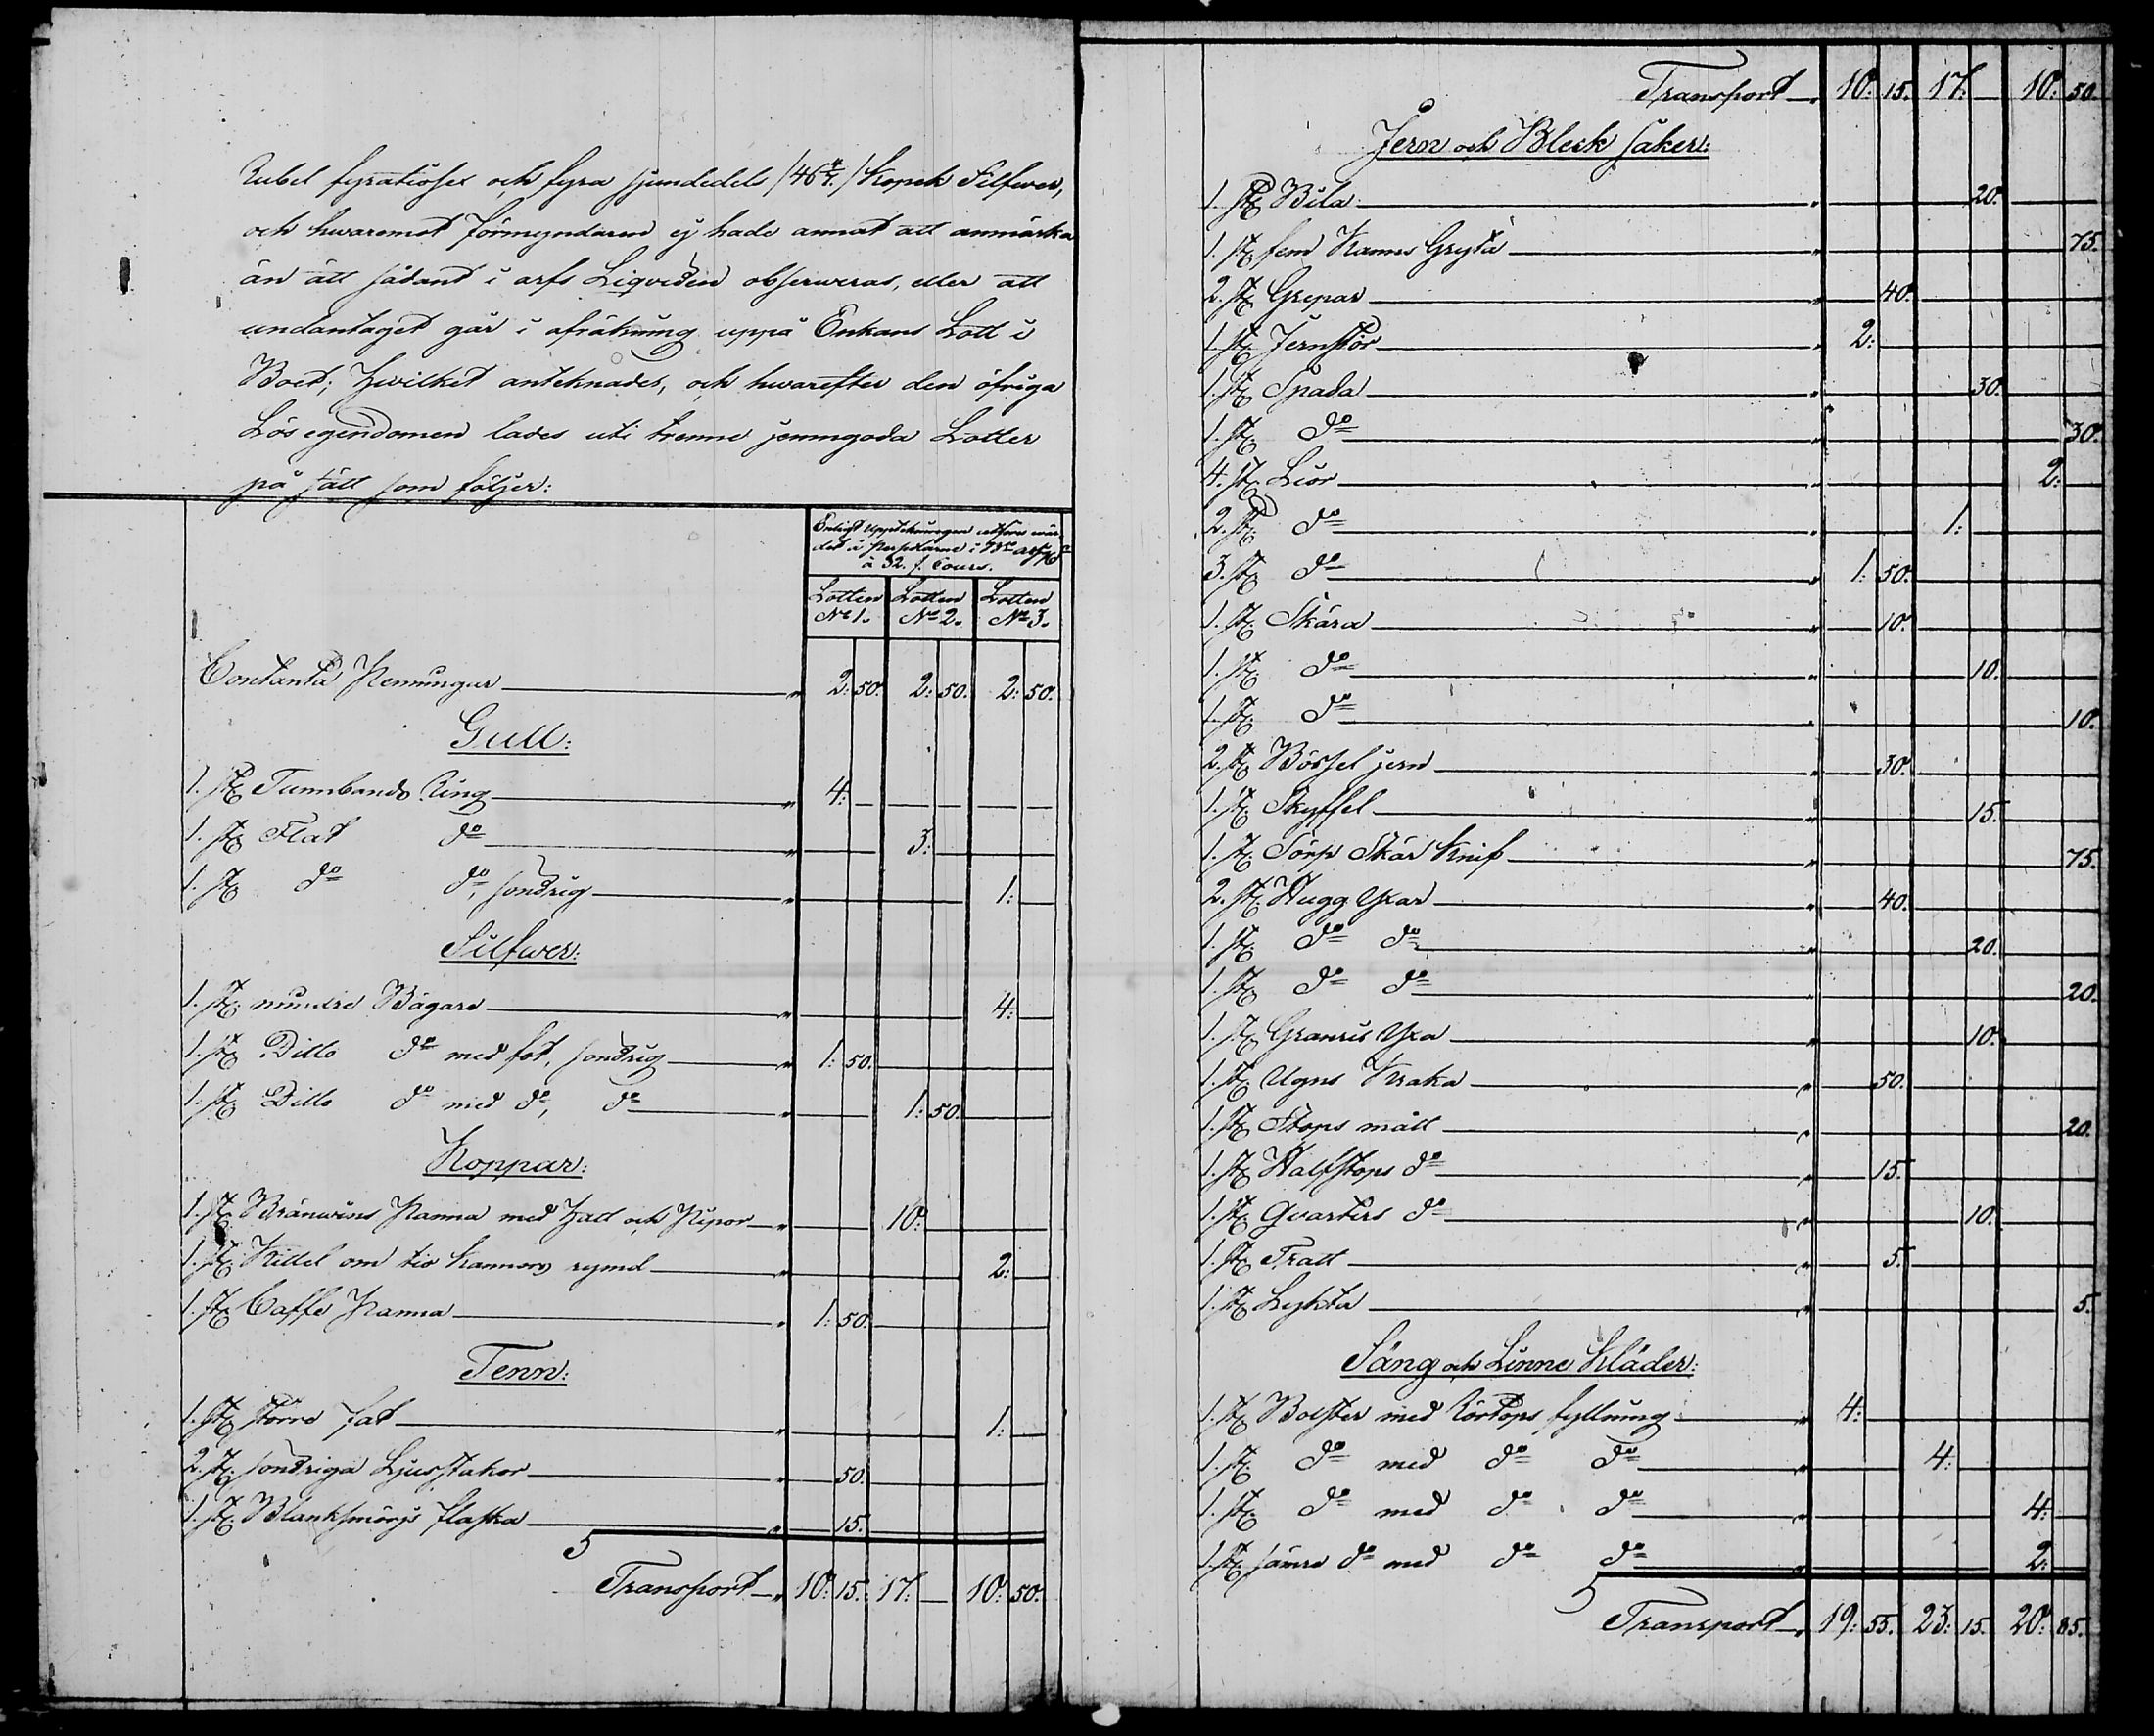 Rubel fyratiosex och fyra sjundedels /46 4/7./ Kopek Silfwer,
och hwaremot förmyndaren ej hade annat att anmärka
än att sådant i arfs Liqviden observeras, eller att
undantaget går i afräkning uppå Enkans Lott i
Boet; hwilket antecknades, och hwarefter den öfriga
Lös egendomen lades uti trenne jemngoda Lotter
på sätt som följer:
Enligt Uppteckningen
à 32. s. Cours.
Lotten Lotten Lotten
No 1. No 2. No 3.
Contanta Penningar 2: 50. 2: 50. 2: 50.
Gull:
1. st. Tunnbands Ring 4:
1. st. Flat do 3:
1. st. do do, söndrig 1:
Silfwer:
1. st. mindre Bägare 4:
1. st. Ditto do med fot, söndrig 1: 50.
1. st. Ditto do med do, do 1: 50.
Koppar:
1. st. Bränwins Panna med hatt och Pipor 10:
1. st. Kittel om tio kannors rymd 2:
1. st. Caffe Panna 1: 50.
Tenn:
1. st. större fat 1:
2. st. söndriga Ljusstakar 50.
1. st. Blanksmörjs flaska 15.
Transport 10: 15. 17: 10: 50.
Transport 10: 15. 17: 10: 50.
Jern och Bleck saker:
1. st. Bila 20.
1. st. fem Kannes Gryta 75.
2. st. Grepar 40.
1. st. Jernstör 2:
1. st. Spada 30.
1. st. do 30.
4. st. Lior 2:
2. st. do 1:
3. st. do 1: 50.
1. st. Skära 10.
1. st. do 10.
1. st. do 10.
2. st. Bössel jern 30.
1. st. Skyffel 15.
1. st. Sörp Skär Knif 75.
2. st. Hugg Yxar 40.
1. st. do do 20.
1. st. do do 20.
1. st. Granris Yxa 10.
1. st. Ugns Kraka 50.
1. st. Stops mått 20.
1. st. Halfstops do 15.
1. st. Qvarters do 10.
1. st. Tratt 5.
1. st. Lykta 5.
Säng och Linne Kläder:
1. st. Bolster med Rörtops fyllning 4:
1. st. do med do do 4:
1. st. do med do do 4:
1. st. sämre do med do do 2:
Transport 19: 55. 23: 15. 20: 85.